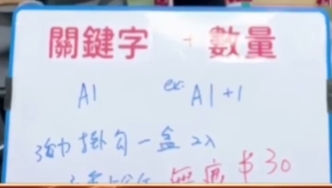 關鍵字 + 數量
A1 ex: A1+1
強力掛勾一盒2入
無痕 $30